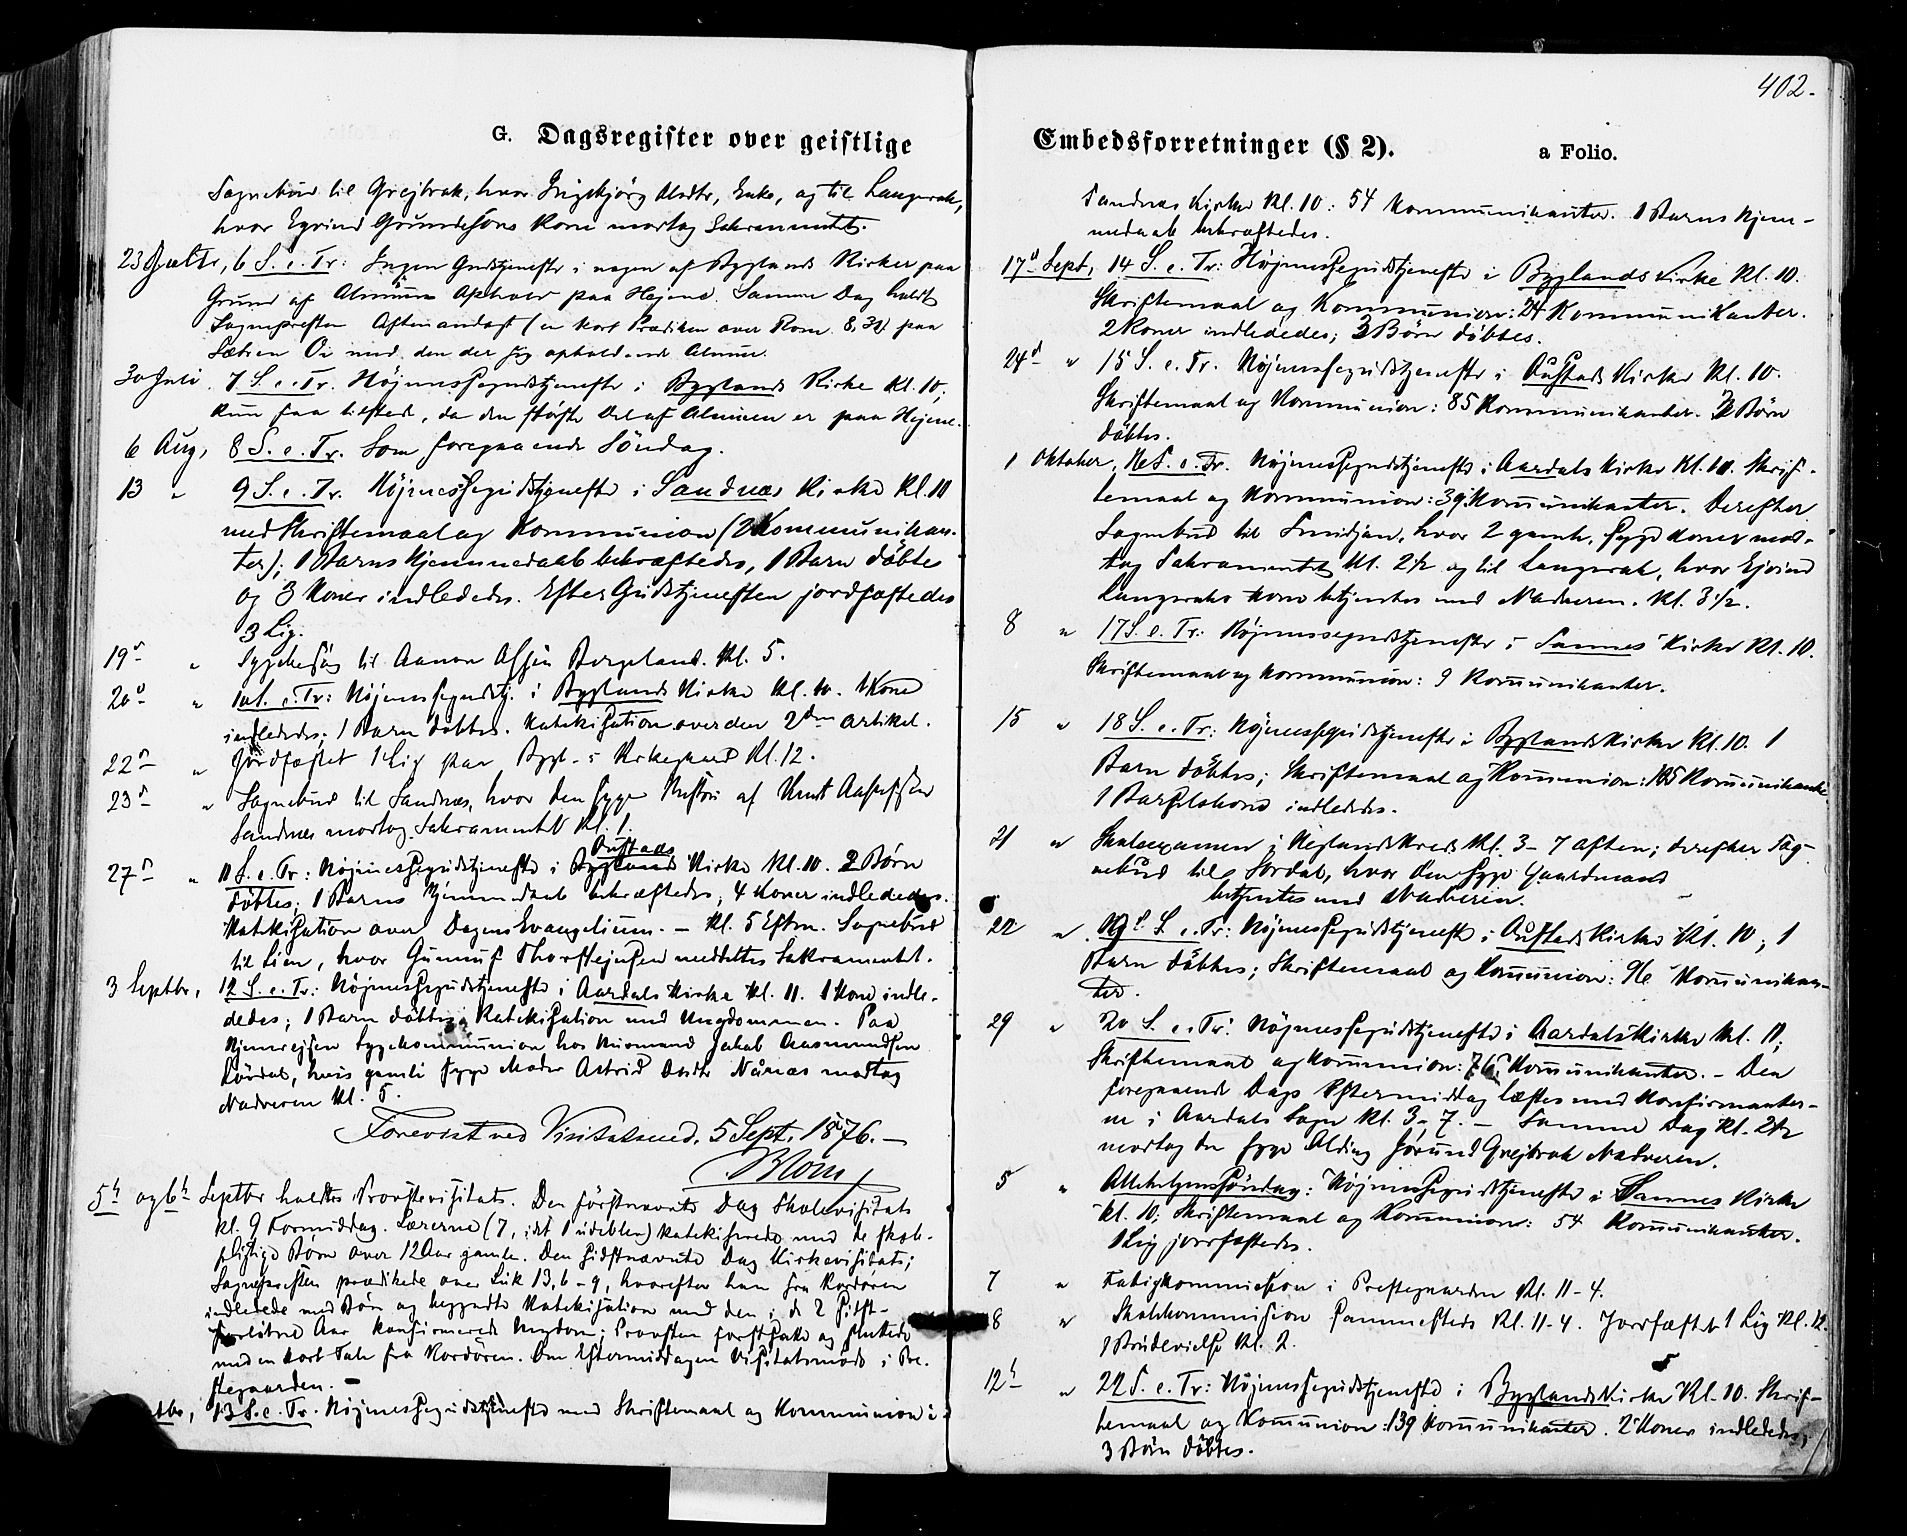 402.
G. Dagsregister over geistlige
Sognebud til Grejtrak, hvor Ingebjörg Olsdtr, Enke, og til Langerak,
hvor Eyvind Gundersöns Kone modtog Sakramentet.
23 Juli, 6 S. e. Tr: Ingen Gudstjeneste i nogen af Byglands Kirker paa
Grund af Almuens Ophold paa Hejene. Samme Dag holdt
Sognepresten Aftenandagt (en kort Prædiken over Rom. 8, 32) paa
Sætren med den der sig opholdende Almue.
30 Juli 7 S. e. Tr. Höjmessegudstjeneste i Byglands Kirke Kl. 10;
kun faa tilstede, da den störste Del af Almuen er paa Hejene.
6 Aug, 8 S. e. Tr. Som foregaaende Söndag.
13 " 9 S. e. Tr. Höjmessegudstjeneste i Sandnæs Kirke Kl. 10
med Skriftemaal og Kommunion (2 Kommunikan-
ter); 1 Barns Hjemmedaab bekræftedes, 1 Barn döbtes
og 3 Koner indlededes. Efter Gudstjenesten jordfæstedes
3 Lig.
19de " Sygebesög til Aanon Bergeland. Kl. 5.
20de " 10 S. e. Tr: Höjmessegudstj. i Byglands Kirke Kl. 10. 1 Kone
indlededes; 1 Barn döbtes. Katekisation over den 2den Artikel.
22de " Jordfæstet 1 Lig paa Bygl.s Kirkegaard Kl. 12.
23de " Sognebud til Sandnæs, hvor den syge af Knut
Sandnæs modtog Sakramentet Kl. 1.
Oustads
27de " 11 S. e. Tr: Höjmessegudstjeneste i Byglands Kirke Kl. 10. 2 Börn
döbtes; 1 Barns Hjemmedaab bekræftedes, 4 Koner indlededes.
Katekisation over Dagens Evangelium. – Kl. 5 Eftm. Sognebud
til Lien, hvor Gunnuf Thorstejnsen meddeltes Sakramentet.
3 Septbr, 12 S. e. Tr: Höjmessegudstjeneste i Aardals Kirke Kl. 11. 1 Kone indle-
dedes; 1 Barn döbtes; Katekisation med Ungdommen. Paa
Hjemrejsen Sygekommunion hos Husmand Jakob Aasmundsen
hvis gamle syge Moder Astrid Næsnæs modtog
Nadveren Kl. 5.
Forevist ved Visitatsmöd, 5 Sept. 1876. –
Blom
5te og 6te Septbr holdtes Provstevisitats. Den förstnævnte Dag Skolevisitats
Kl. 9 Formiddag. Lærerne (7, idet 1 udeblev) katekiserede med de skole-
pligtige Börn over 12 Aar gamle. Den sidstnævnte Dag Kirkevisitats;
Sognepresten prædikede over Luk 13, 6-9, hvorefter han fra Kordören
indledede med Bön og begyndte Katekisation med den i de 2 sidst-
forlöbne Aar konfirmerede Ungdom; Provsten fortsatte og sluttede
med en kort Tale fra Kordören. Om Eftermiddagen Visitatsmöde i Pre-
stegaarden. –
13 S. e. Tr. Höjmessegudstjeneste med Skriftemaal og Kommunion i
Embedsforretninger (§ 2).
a Folio.
Sandnæs Kirke Kl. 10: 54 Kommunikanter. 1 Barns Hjem-
medaab bekræftedes.
17de Sept, 14 S. e. Tr: Höjmessegudstjeneste i Byglands Kirke Kl. 10.
Skriftemaal og Kommunion: 24 Kommunikanter.
2 Koner indlededes; 3 Börn döbtes.
24de " 15 S. e. Tr. Höjmessegudstjeneste i Oustads Kirke Kl. 10.
Skriftemaal og Kommunion: 85 Kommunikanter. 2 Börn
döbtes.
1 Oktober, 16 S. e. Tr. Höjmessegudstjeneste i Aardals Kirke Kl. 10. Skrif-
temaal og Kommunion: 39 Kommunikanter. Derefter
Sognebud til Smidjan, hvor 2 gamle, syge Koner mod-
tog Sakramentet Kl. 2½ og til Langerak, hvor Ejvind
Langeraks Kone betjentes med Nadveren. Kl. 3½.
8 " 17 S. e. Tr: Höjmessegudstjeneste i Sannes Kirke Kl. 10.
Skriftemaal og Kommunion: 9 Kommunikanter.
15 " 18 S. e. Tr: Höjmessegudstjeneste i Byglands Kirke Kl. 10. 1
Barn döbtes; Skriftemaal og Kommunion: 105 Kommunikanter
1 Barselkone indlededes.
21 " Skoleexamen i Neglands Kreds Kl. 3-7 Aften; derefter Sog-
nebud til Sordal, hvor den syge Gaardmand
betjentes med Nadveren.
22 " 19de S. e. Tr: Höjmessegudstjeneste i Oustads Kirke Kl. 10; 1
Barn döbtes; Skriftemaal og Kommunion: 96 Kommunikan-
ter.
29 " 20 S. e. Tr: Höjmessegudstjeneste i Aardals Kirke Kl. 11;
Skriftemaal og Kommunion: 76 Kommunikanter. – Den
foregaaende Dags Eftermiddag læstes med Konfirmanter-
ne i Aardals Sogn Kl. 3-7. – Samme Dag Kl. 2½
modtog den syge Olding Jörund Grejtrak Nadveren.
5 " Allehelgenssöndag: Höjmessegudstjeneste i Sannes Kirke
Kl. 10; Skriftemaal og Kommunion: 54 Kommunikanter.
1 Lig jordfæstedes.
7 " Fatigkommission i Prestegaarden Kl. 11-4.
8 " Skolekommission sammesteds Kl. 11-4. Jordfæstet 1 Lig Kl. 12.
1 Brudevielse Kl. 2.
12te " 22 S. e. Tr: Höjmessegudstjeneste i Byglands Kirke Kl. 10. Skrif-
temaal og Kommunion: 139 Kommunikanter. 2 Koner indlededes;
3 Börn döbtes.